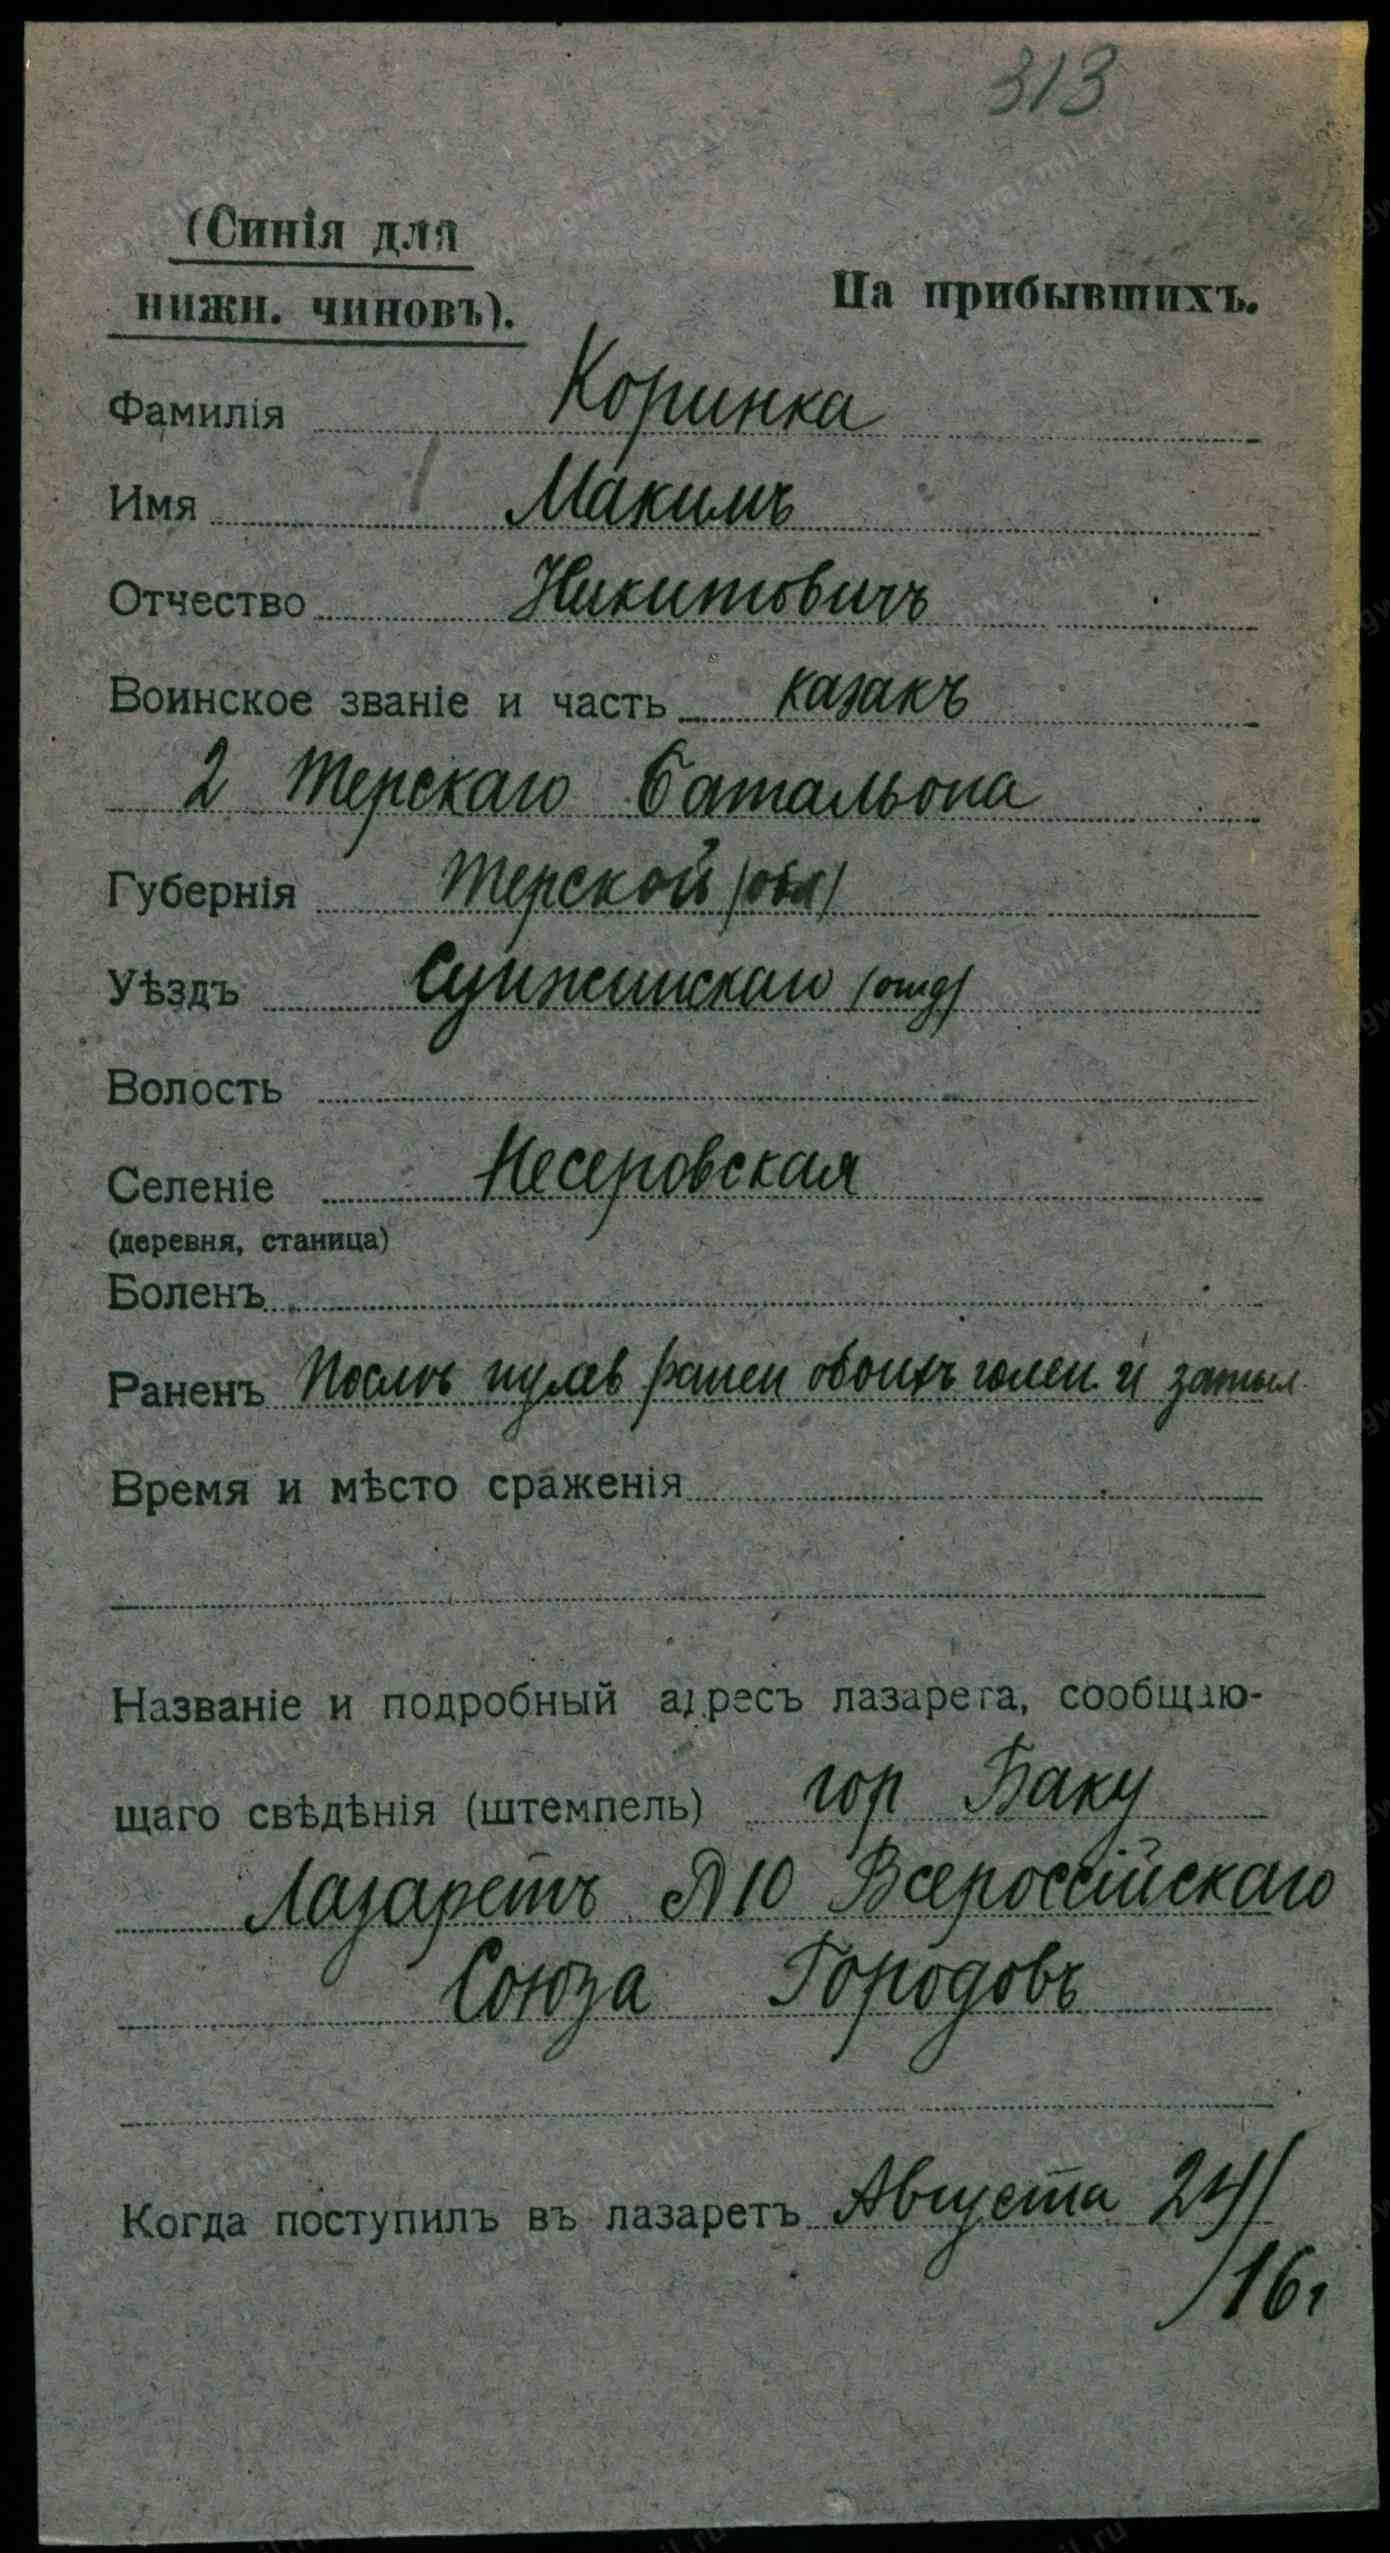 313
(Синія для
нижн. чиновъ).
На прибывшихъ.
Фамилія Коринка
Имя Макимъ
Отчество Никитовичъ
Воинское званіе и часть казакъ
2 Терскаго Батальона
Губернія Терской (обл)
Уѣздъ Сунженскаго (отд)
Волость
Селеніе Несеровская
(деревня, станица)
Боленъ
Раненъ пулев ранен обоихъ голен и затыл
Время и мѣсто сраженія
Названіе и подробный адресъ лазарета, сообщаю-
щаго свѣдѣнія (штемпель) гор Баку
Лазаретъ №10 Всероссійскаго
Союза Городовъ
Когда поступилъ въ лазаретъ Августа 24/
/16г